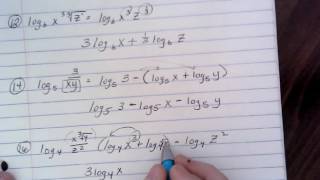 (12) log₆ x³ ∛z = log₆ x³ z^(1/3)
3 log₆ x + ⅓ log₆ z
(14) log₅ 3/(xy) = log₅ 3 - (log₅ x + log₅ y)
log₅ 3 - log₅ x - log₅ y
(16) log₄ (log₄ x³ + log₄ - log₄ z²
3 log₄ x